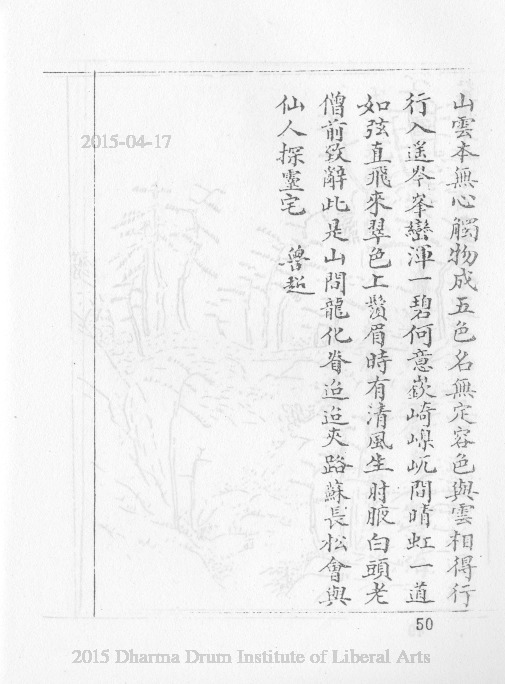 山雲本無心觸物成五色名無定容色與雲相得行
行入遙岑峯巒渾一碧何意嶔崎㠔屼間晴虹一道
如弦直飛來翠色上鬚眉時有清風生肘腋白頭老
僧前致辭此是山間龍化脊迢迢夾路蘇長松會與
仙人探靈宅 魯超
2015-04-17
50
2015 Dharma Drum Institute of Liberal Arts